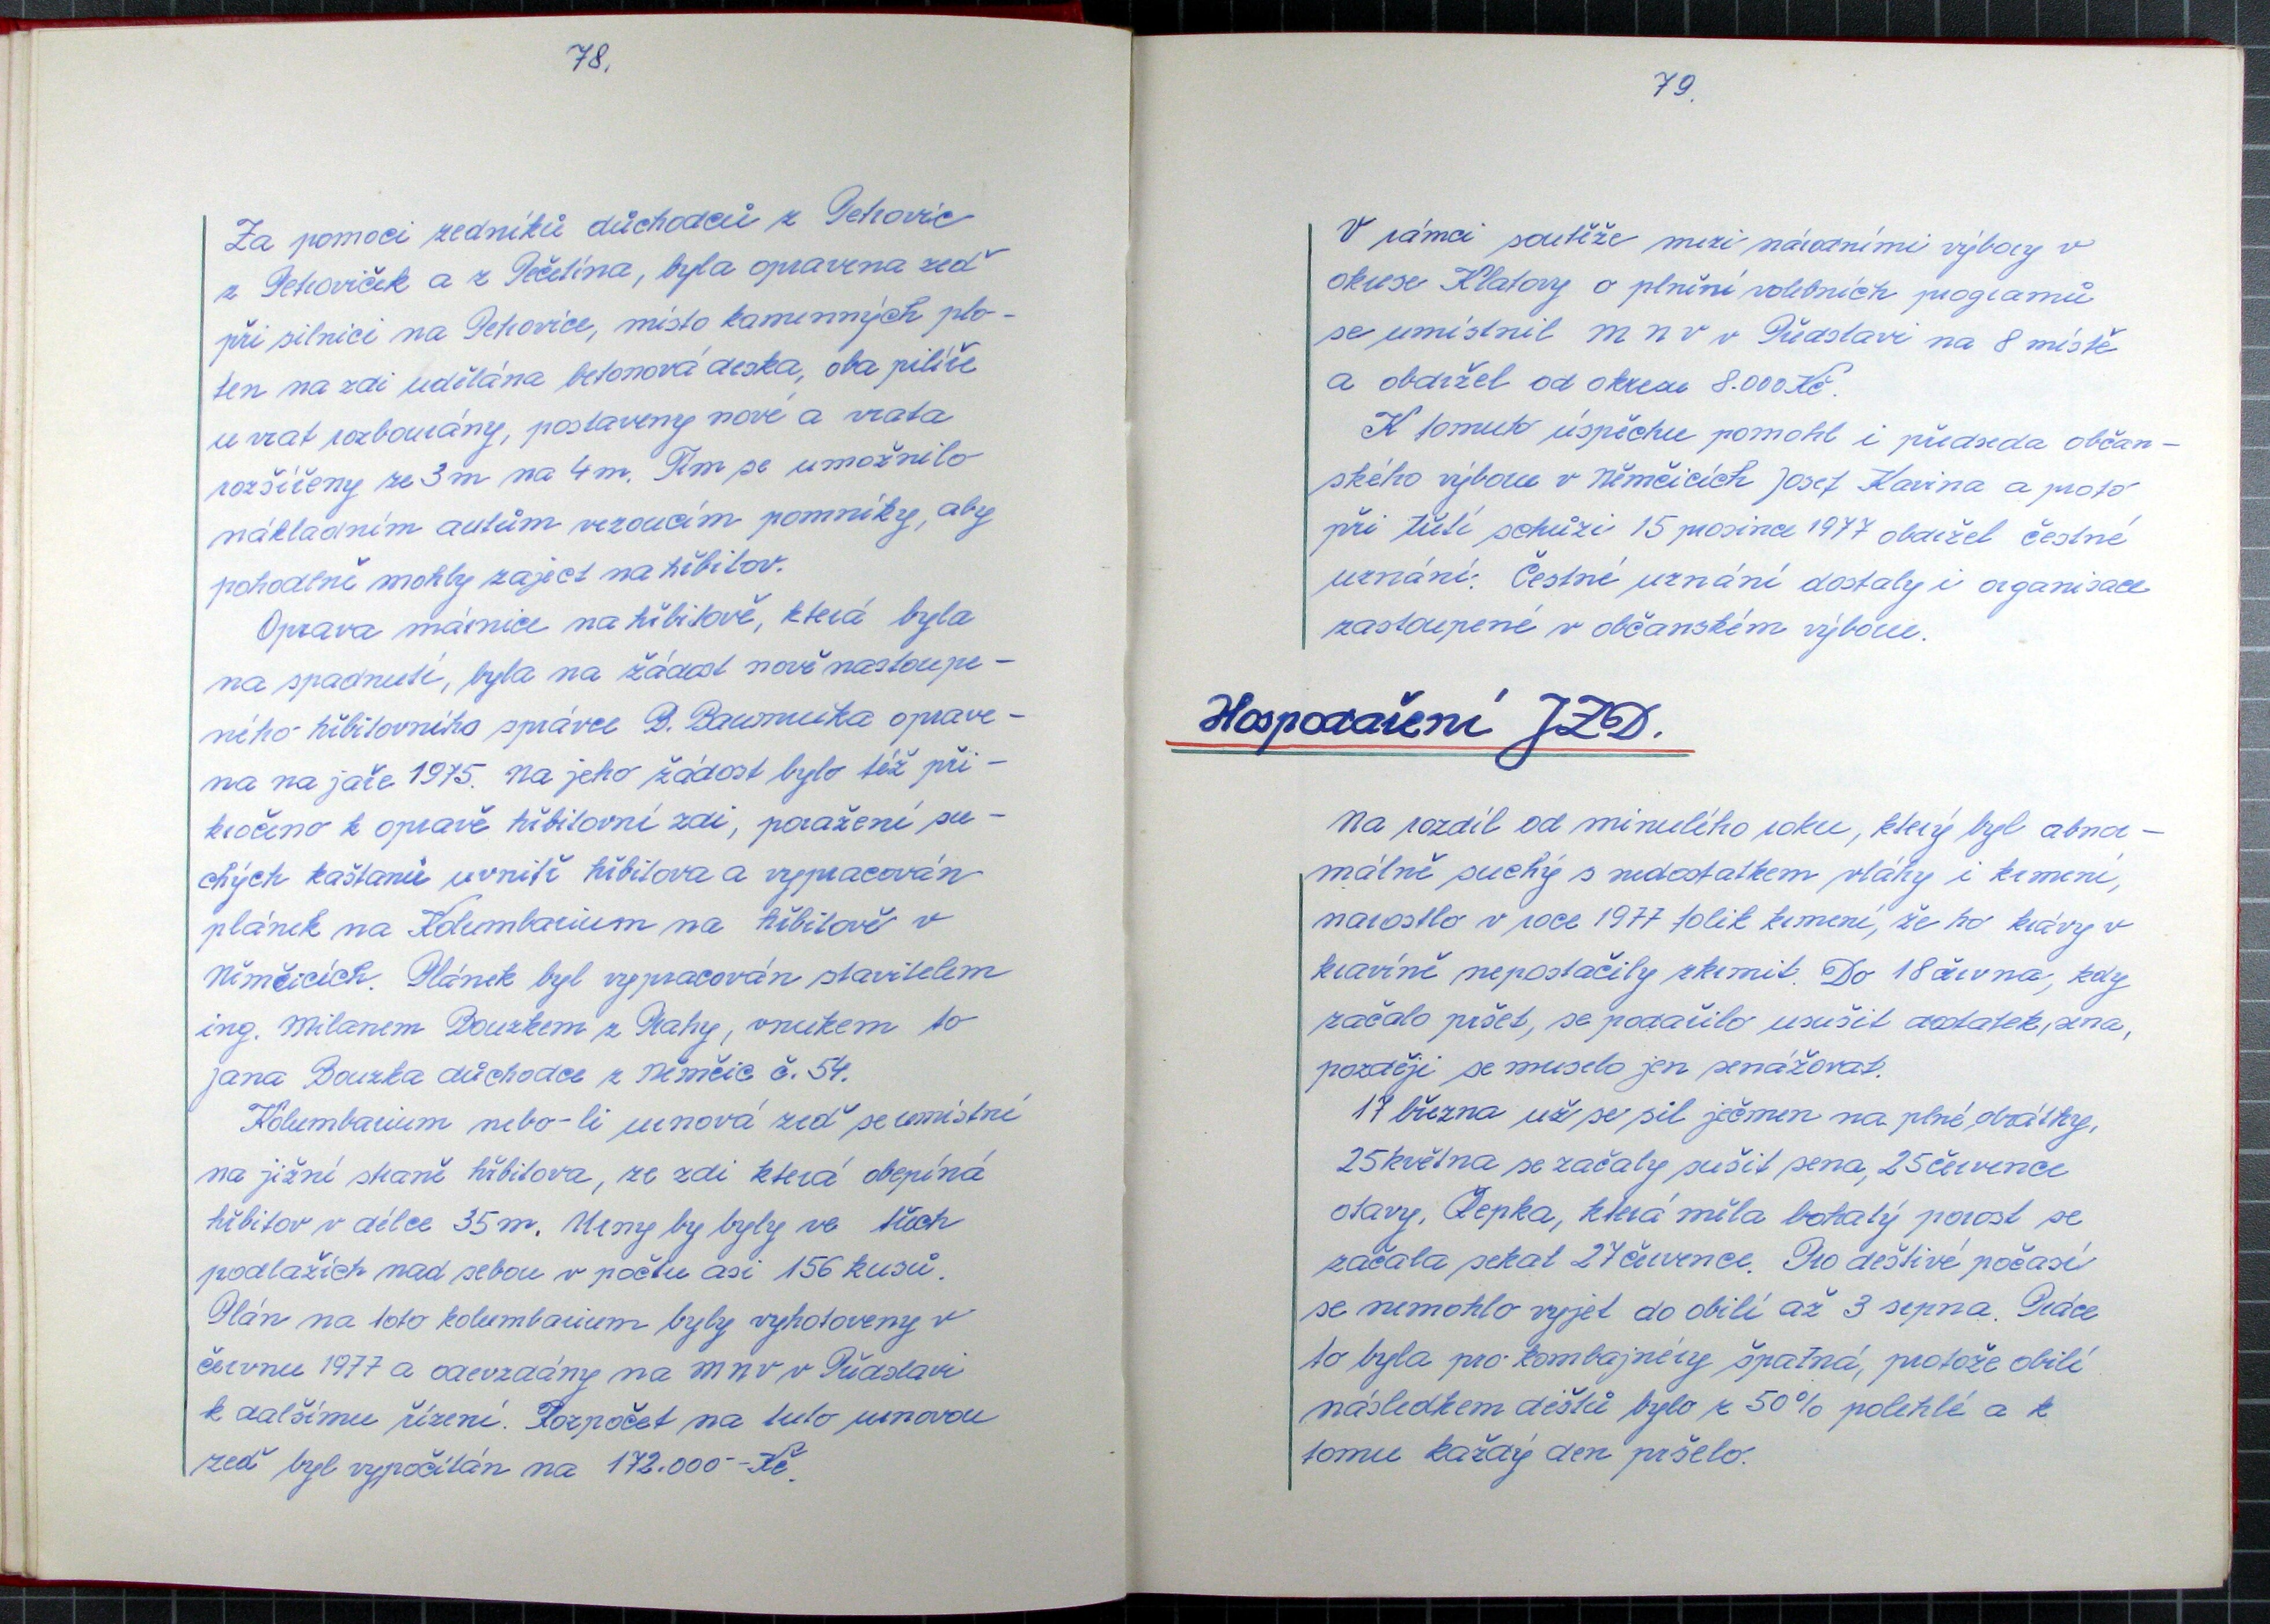 78.
Za pomoci zedníků důchodců z Petrovic
z Petroviček a z Pečetína, byla opravena zeď
při silnici na Petrovice, místo kamenných plo-
ten na zdi udělána betonová deska, oba pilíře
u vrat rozbourány, postaveny nové a vrata
rozšířeny ze 3 m na 4 m. Tím se umožnilo
nákladním autům vezoucím pomníky, aby
pohodlně mohly zaject na hřbitov.
Oprava márnice na hřbitově, která byla
na spadnutí, byla na žádost nově nastoupe-
ného hřbitovního správce B. Baumruka oprave-
na na jaře 1975. Na jeho žádost bylo též při-
kročeno k opravě hřbitovní zdi, poražení su-
chých kaštanů uvnitř hřbitova a vypracován
plánek na Kolumbarium na hřbitově v
Němčicích. Plánek byl vypracován stavitelem
ing. Milanem Bouzkem z Prahy, vnukem to
Jana Bouzka důchodce z Němčic č. 54.
Kolumbarium nebo-li urnová zeď se umístní
na jižní straně hřbitova, ze zdi která obepíná
hřbitov v délce 35 m. Urny by byly ve třech
podlažích nad sebou v počtu asi 156 kusů.
Plán na toto kolumbarium byly vyhotoveny v
červnu 1977 a odevzdány na MNV v Předslavi
k dalšímu řízení. Rozpočet na tuto urnovou
zeď byl vypočítán na 172.000 - Kč.
79.
V rámci soutěže mezi národními výbory v
okrese Klatovy o plnění volebních programů
se umístnil MNV v Předslavi na 8 místě
a obdržel od okresu 8.000 Kč.
K tomuto úspěchu pomohl i předseda občan-
ského výboru v Němčicích Josef Kavina a proto
při třetí schůzi 15 prosince 1977 obdržel čestné
uznání. Čestné uznání dostaly i organisace
zastoupené v občanském výboru.
Hospodaření JZD.
Na rozdíl od minulého roku, který byl abnor-
málně suchý s nedostatkem vláhy i krmení,
narostlo v roce 1977 tolik krmení, že ho krávy v
kravíně nepostačily zkrmit. Do 18 června, kdy
začalo pršet, se podařilo usušit dostatek sena,
později se muselo jen senážovat.
17 března už se sil ječmen na plné obrátky,
25 května se začaly sušit sena, 25 července
otavy. Řepka, která měla bohatý porost se
začala sekat 27 července. Pro deštivé počasí
se nemohlo vyjet do obilí až 3 srpna. Práce
to byla pro kombajnéry špatná, protože obilí
následkem dešťů bylo z 50% polehlé a k
tomu každý den pršelo.